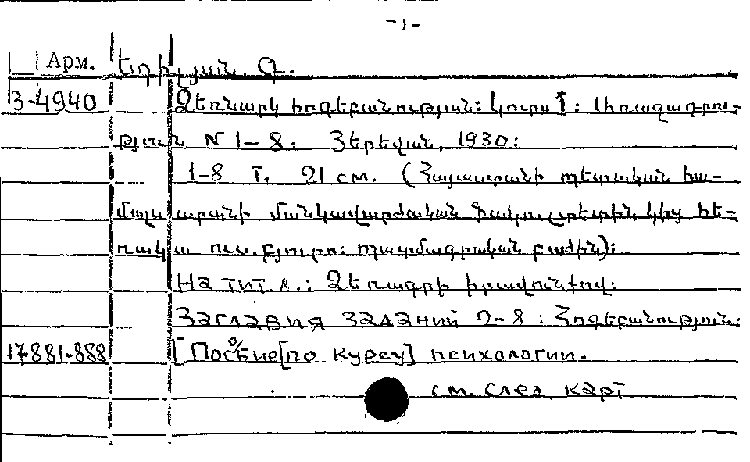 -1-
Арм. Եղիկյան Գ.
3-4940 Ձեռնարկ հոգեբանության: Կուրս I: Առաջադրու-
թյուն N 1-8. Յերեվան, 1930:
1-8 т. 21 см. (Հայաստանի պետական հա-
մալսարանի մանկավարժական ֆակուլտետին կից հե-
ռակա ուս. բյուրո: Պատմագրական բաժին):
На тит. л.: Ձեռագրի իրավունքով:
Заглавия заданий 2-8: Հոգեբանություն:
17-881-888 [Пособие [по курсу] психологии.
см. след карт